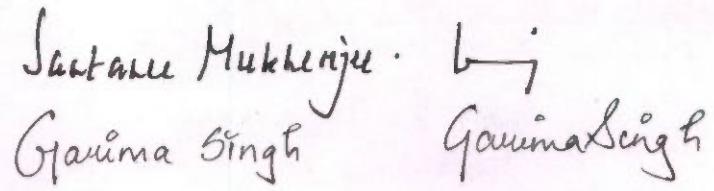 Santanu Mukherjee.
Garima Singh Garima Singh